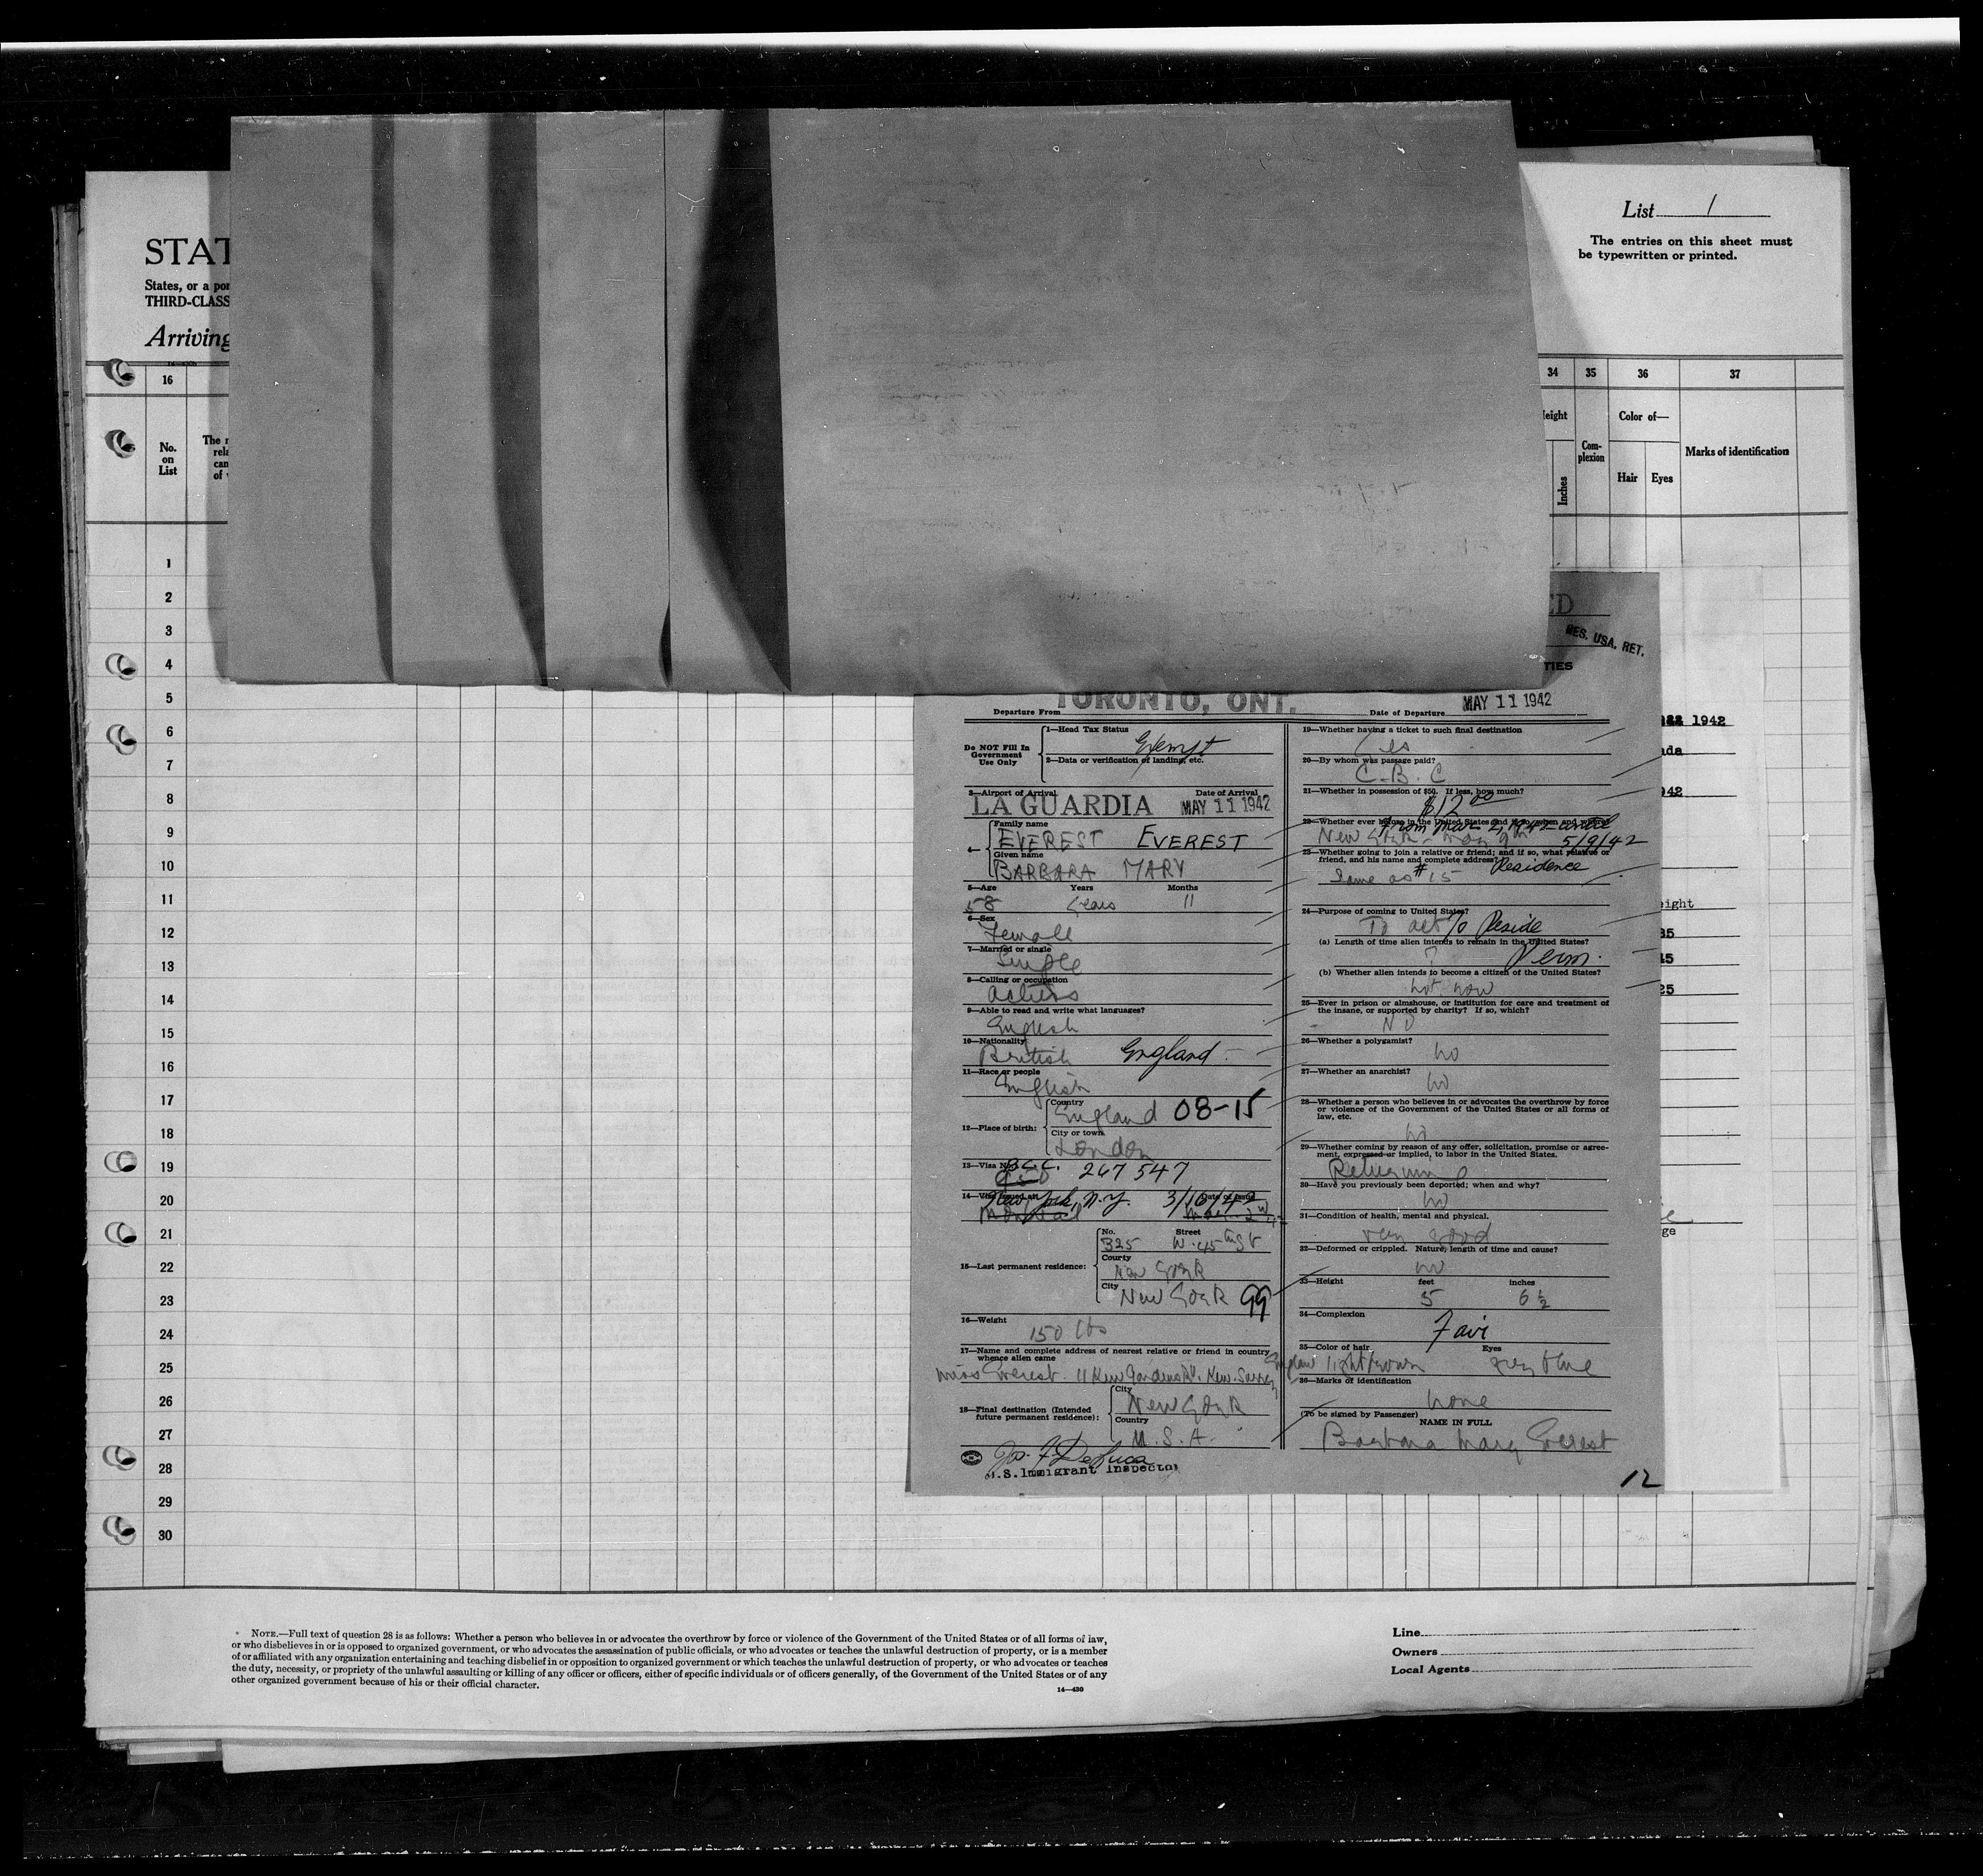 List 1
The entries on this sheet must
be typewritten or printed.
STAT
States, or a por
THIRD-CLASS
Arriving
16
No.
on
List
The
rela
can
of
34 35 36 37
eight
Com-
plexion
Color of—
Marks of identification
Inches
Hair Eyes
1
2
3
4
5
6
7
8
9
10
11
12
13
14
15
16
17
18
19
20
21
22
23
24
25
26
27
28
29
30
ED
RES. USA, RET.
TIES
TORONTO, ONT.
Departure From
Date of Departure MAY 11 1942
Do NOT Fill In
Government
Use Only
1—Head Tax Status
Exempt
2—Data or verification of landing, etc.
3—Airport of Arrival Date of Arrival
LA GUARDIA MAY 11 1942
4—
Family name
EVEREST EVEREST
Given name
BARBARA MARY
5—Age Years Months
58 Years 11
6—Sex
Female
7—Married or single
Single
8—Calling or occupation
Actress
9—Able to read and write what languages?
English
10—Nationality
British England
11—Race or people
English
12—Place of birth:
Country
England 08-15
City or town
London
13—Visa No.
267547
14—Visa issued at Date of Issue
New York, N.Y. 3/10/42
Montreal
15—Last permanent residence:
No. Street
325 W. 45th St
County
New York
City
New York 99
16—Weight
150 lbs
17—Name and complete address of nearest relative or friend in country
whence alien came
Miss Everest. 11 Kew Gardens Rd. Kew. Surrey England
18—Final destination (Intended
future permanent residence):
City
New York
Country
U.S.A.
U.S. Immigrant Inspector
19—Whether having a ticket to such final destination
Yes
20—By whom was passage paid?
C.B.C
21—Whether in possession of $50. If less, how much?
$12.00
22—Whether ever before in the United States and if so, when and where?
From Mar 2, 1942 until
New York 5/9/42
23—Whether going to join a relative or friend; and if so, what relative or
friend, and his name and complete address?
Same as #15 Residence
24—Purpose of coming to United States?
To act To Reside
(a) Length of time alien intends to remain in the United States?
? Perm.
(b) Whether alien intends to become a citizen of the United States?
not now
25—Ever in prison or almshouse, or institution for care and treatment of
the insane, or supported by charity? If so, which?
NO
26—Whether a polygamist?
no
27—Whether an anarchist?
no
28—Whether a person who believes in or advocates the overthrow by force
or violence of the Government of the United States or all forms of
law, etc.
no
29—Whether coming by reason of any offer, solicitation, promise or agree-
ment, expressed or implied, to labor in the United States.
Returning
30—Have you previously been deported; when and why?
no
31—Condition of health, mental and physical.
very good
32—Deformed or crippled. Nature, length of time and cause?
no
33—Height feet inches
5 6½
34—Complexion
Fair
35—Color of hair Eyes
light brown grey blue
36—Marks of identification
none
(To be signed by Passenger)
NAME IN FULL
Barbara Mary Everest
12
1942
ada
942
eight
35
45
25
ge
* NOTE.—Full text of question 28 is as follows: Whether a person who believes in or advocates the overthrow by force or violence of the Government of the United States or of all forms of law,
or who disbelieves in or is opposed to organized government, or who advocates the assassination of public officials, or who advocates or teaches the unlawful destruction of property, or is a member
of or affiliated with any organization entertaining and teaching disbelief in or opposition to organized government or which teaches the unlawful destruction of property, or who advocates or teaches
the duty, necessity, or propriety of the unlawful assaulting or killing of any officer or officers, either of specific individuals or of officers generally, of the Government of the United States or of any
other organized government because of his or their official character.
14—430
Line
Owners
Local Agents